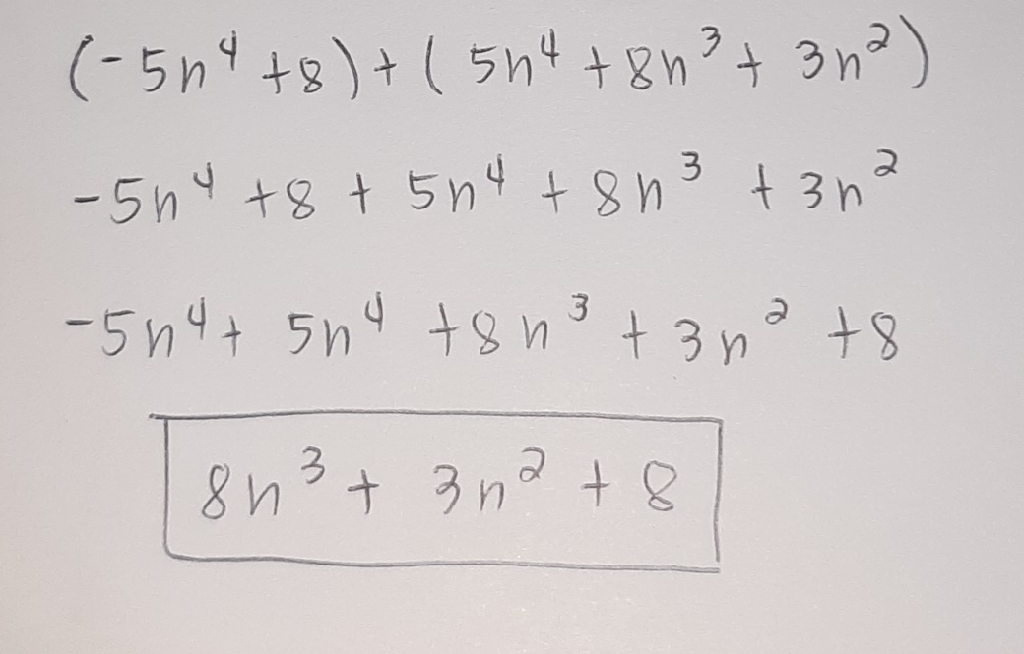 (-5n⁴ +8) + ( 5n⁴ + 8n³ + 3n²)
-5n⁴ +8 + 5n⁴ + 8n³ + 3n²
-5n⁴ + 5n⁴ +8n³ + 3n² +8
8n³ + 3n² + 8